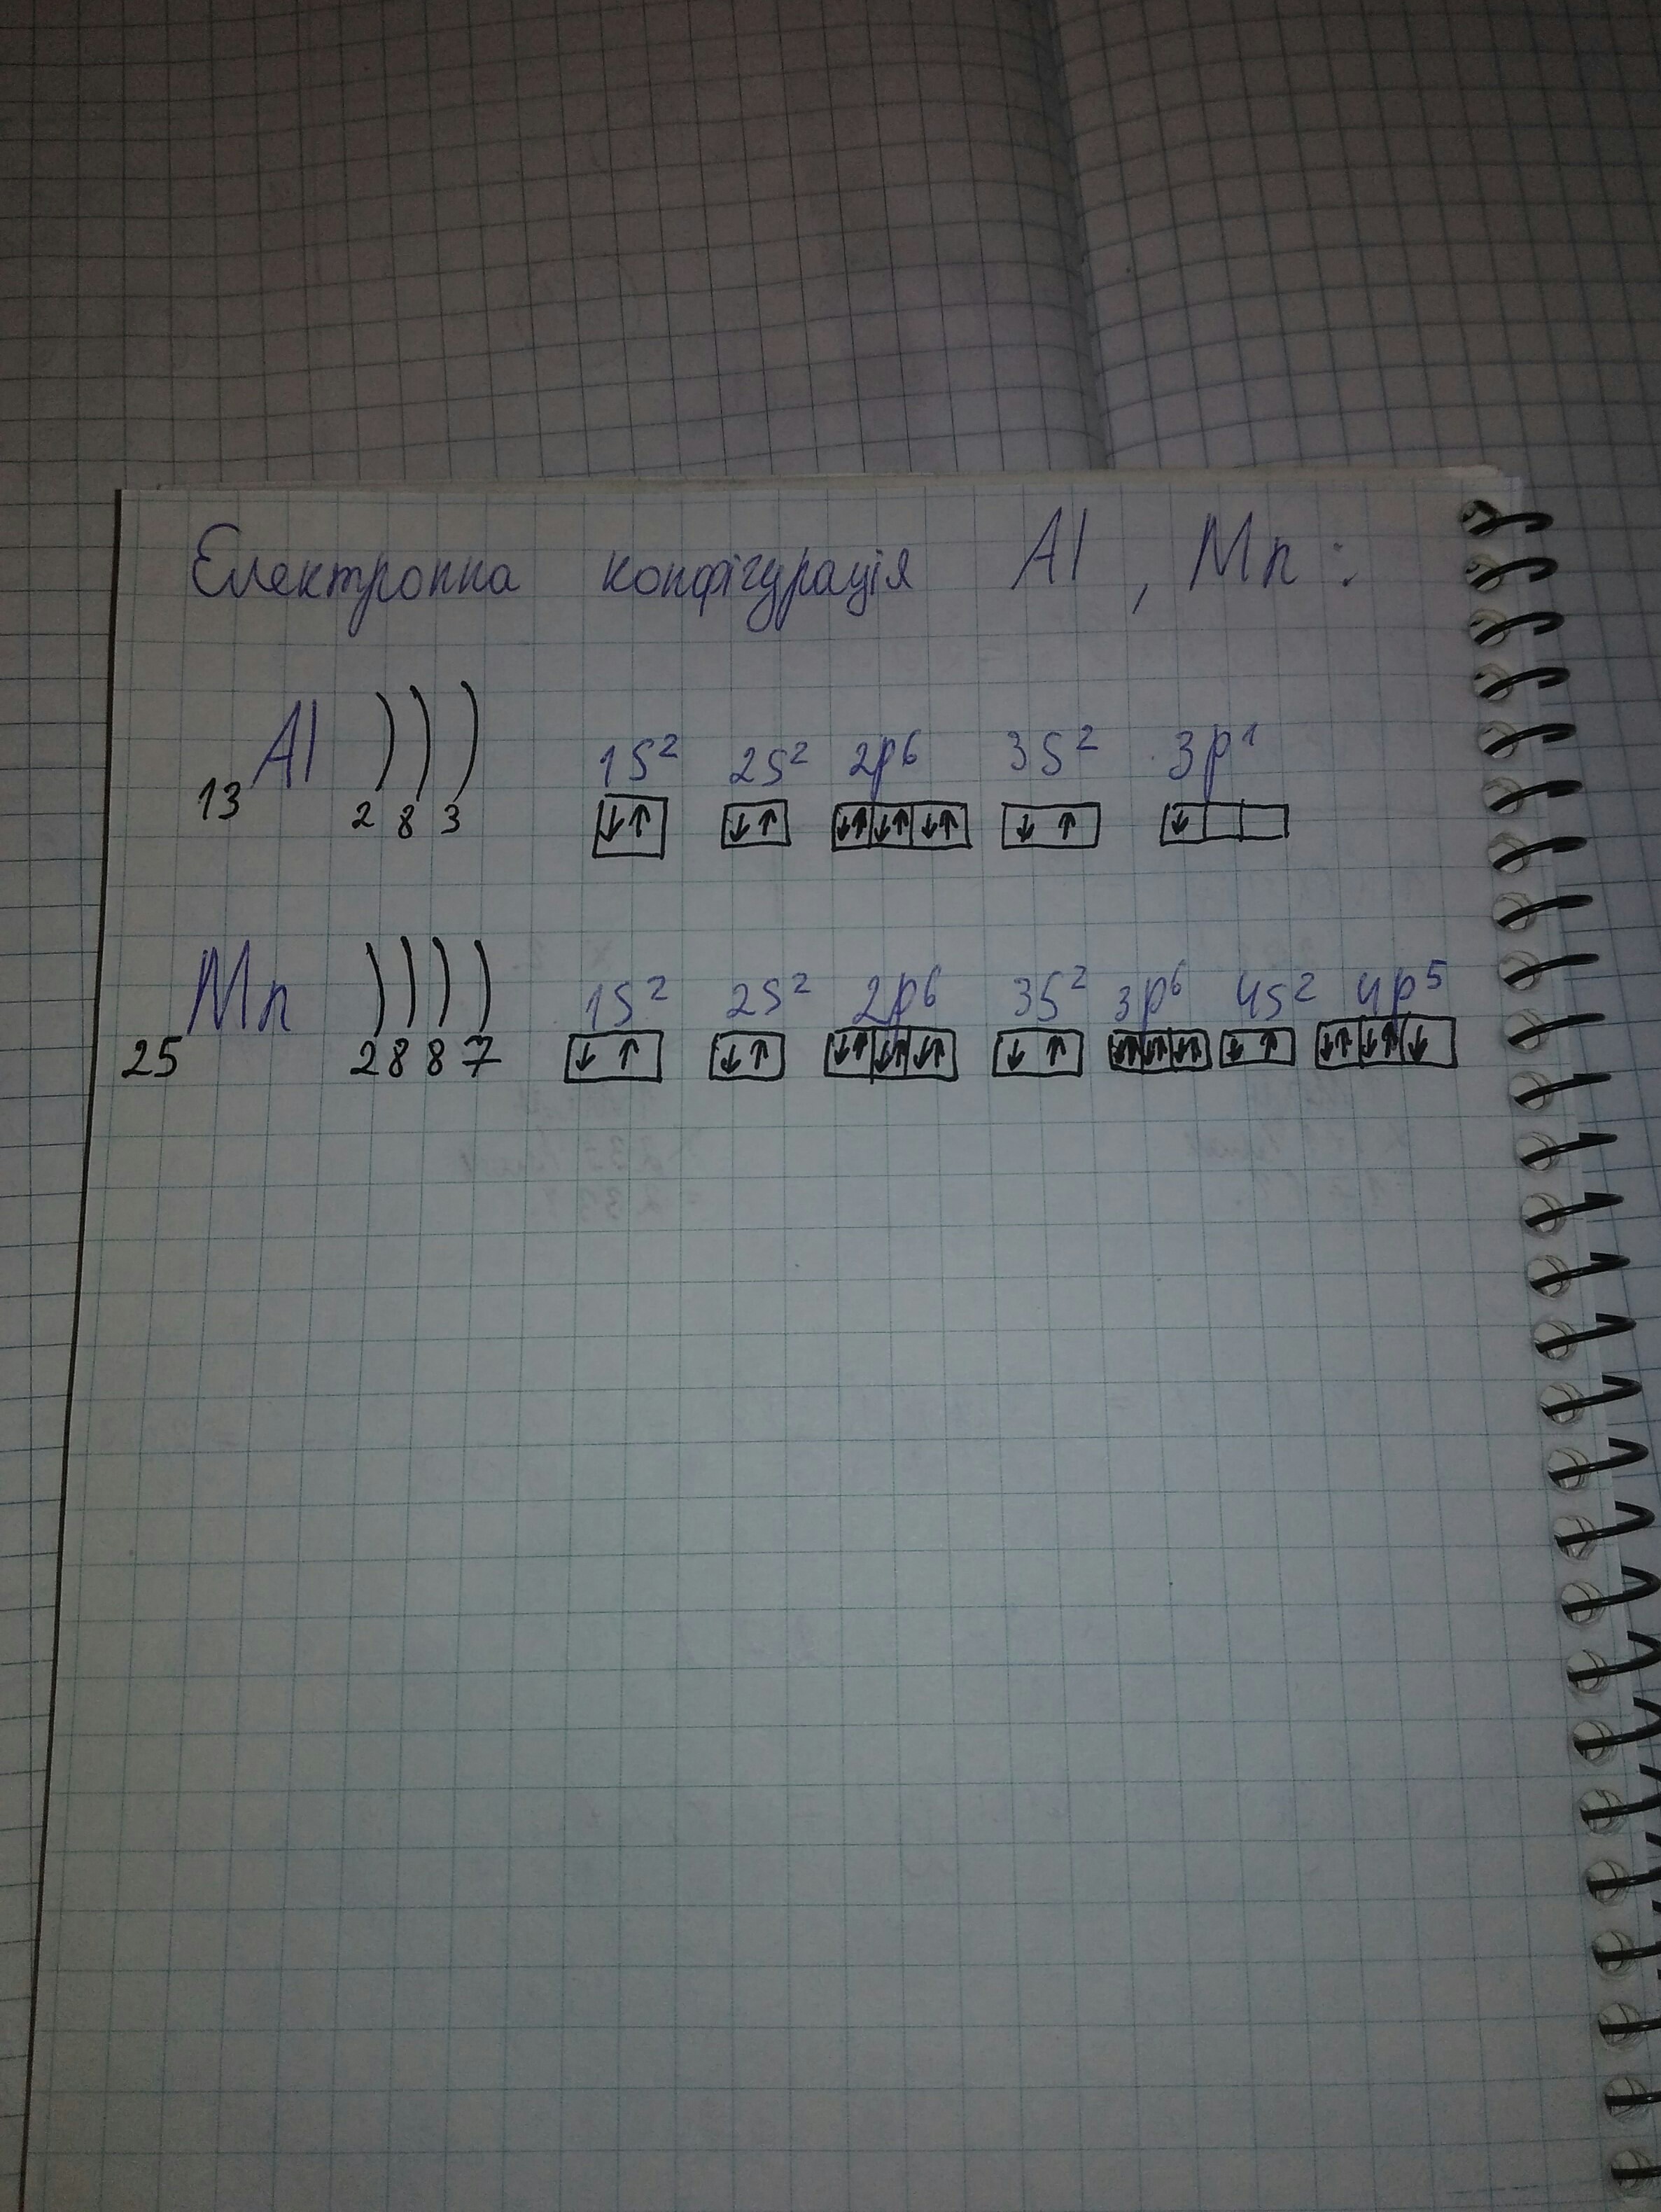 Електронна конфігурація Al, Mn:
13 Al ) ) ) 1s² 2s² 2p⁶ 3s² 3p¹
2 8 3 ↓↑ ↓↑ ↓↑ ↓↑ ↓↑ ↓↑ ↓
25 Mn ) ) ) ) 1s² 2s² 2p⁶ 3s² 3p⁶ 4s² 4p⁵
2 8 8 7 ↓↑ ↓↑ ↓↑ ↓↑ ↓↑ ↓↑ ↓↑ ↓↑ ↓↑ ↓↑ ↓↑ ↓↑ ↓